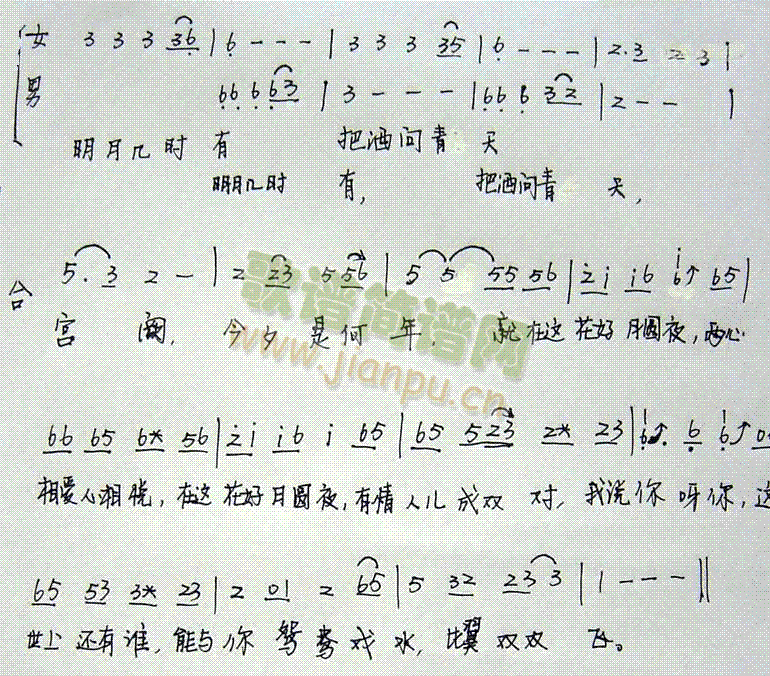 女 3 3 3 36 | 6 - - - | 3 3 3 35 | 6 - - - | 2·3 2 3 |
男 66 6 63 | 3 - - - | 66 6 32 | 2 - - |
明月几时 有 把酒问青 天
明月几时 有, 把酒问青 天,
合 5· 3 2 - | 2 23 5 56 | 5 5 55 56 | 2i i6 6 65 |
宫 阙, 今夕 是何 年, 就在这 花好月圆夜, 两心
歌谱简谱网
www.jianpu.cn
66 65 6* 56 | 2i i6 i 65 | 65 523 2* 23 | 6 6 6
相爱心相悦, 在这花好月圆夜, 有情人儿成双 对, 我说你呀你, 这
65 53 3* 23 | 2 01 2 65 | 5 32 23 3 | 1 - - - ‖
世上还有谁, 能与你 鸳鸯戏水, 比翼双双 飞。